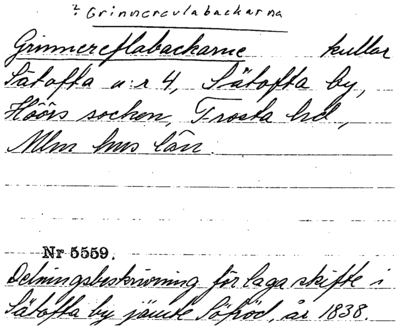 ? Grinnerevlabackarna
Grinnereflabackarne kullar
Sätofta n:r 4, Sätofta by,
Höörs socken, Frosta hd,
Mlm hus län.
Nr 5559.
Delningsbeskrivning för laga skifte i
Sätofta by jämte Söröd, år 1838.